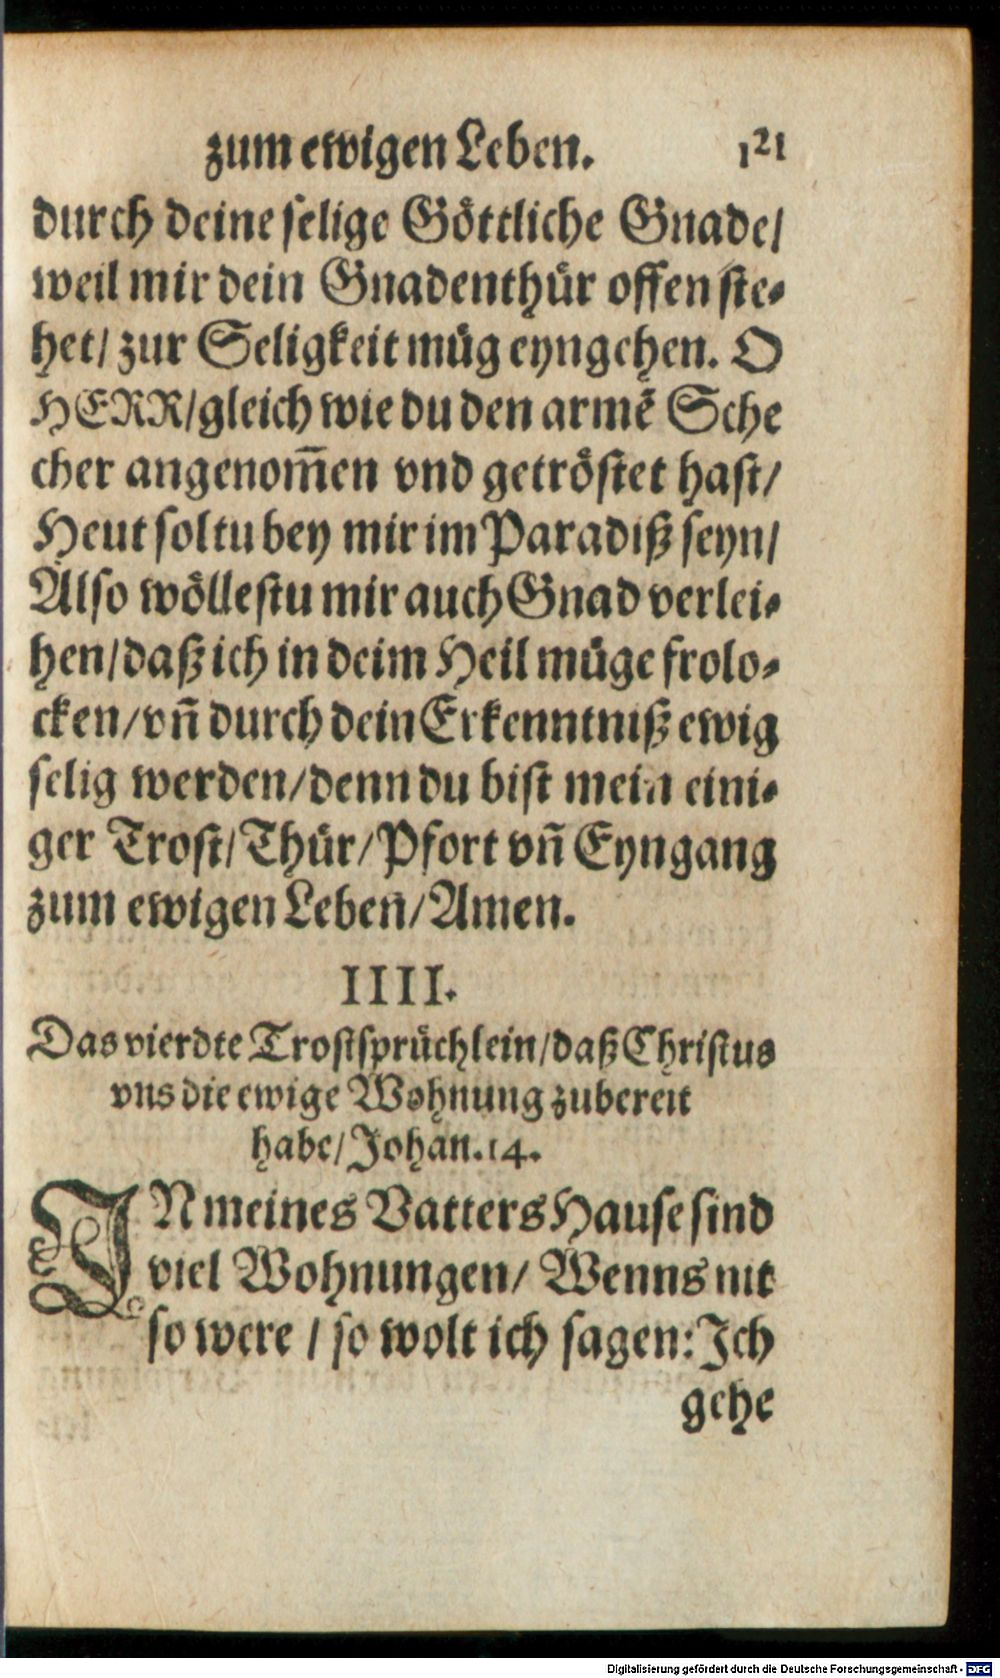 zum ewigen Leben. 121
durch deine selige Göttliche Gnade/
weil mir dein Gnadenthür offen ste-
het/ zur Seligkeit müg eyngehen. O
HERR/ gleich wie du den armẽ Sche
cher angenom̃en vnd getröstet hast/
Heut soltu bey mir im Paradiß seyn/
Also wöllestu mir auch Gnad verlei-
hen/ daß ich in deim Heil müge frolo-
cken/ vñ durch dein Erkenntniß ewig
selig werden/ denn du bist mein eini-
ger Trost/ Thür/ Pfort vñ Eyngang
zum ewigen Leben/ Amen.
IIII.
Das vierdte Trostsprüchlein/ daß Christus
vns die ewige Wohnung zubereit
habe/ Johan. 14.
IN meines Vatters Hause sind
viel Wohnungen/ Wenns nit
so were / so wolt ich sagen: Ich
gehe
Digitalisierung gefördert durch die Deutsche Forschungsgemeinschaft - DFG